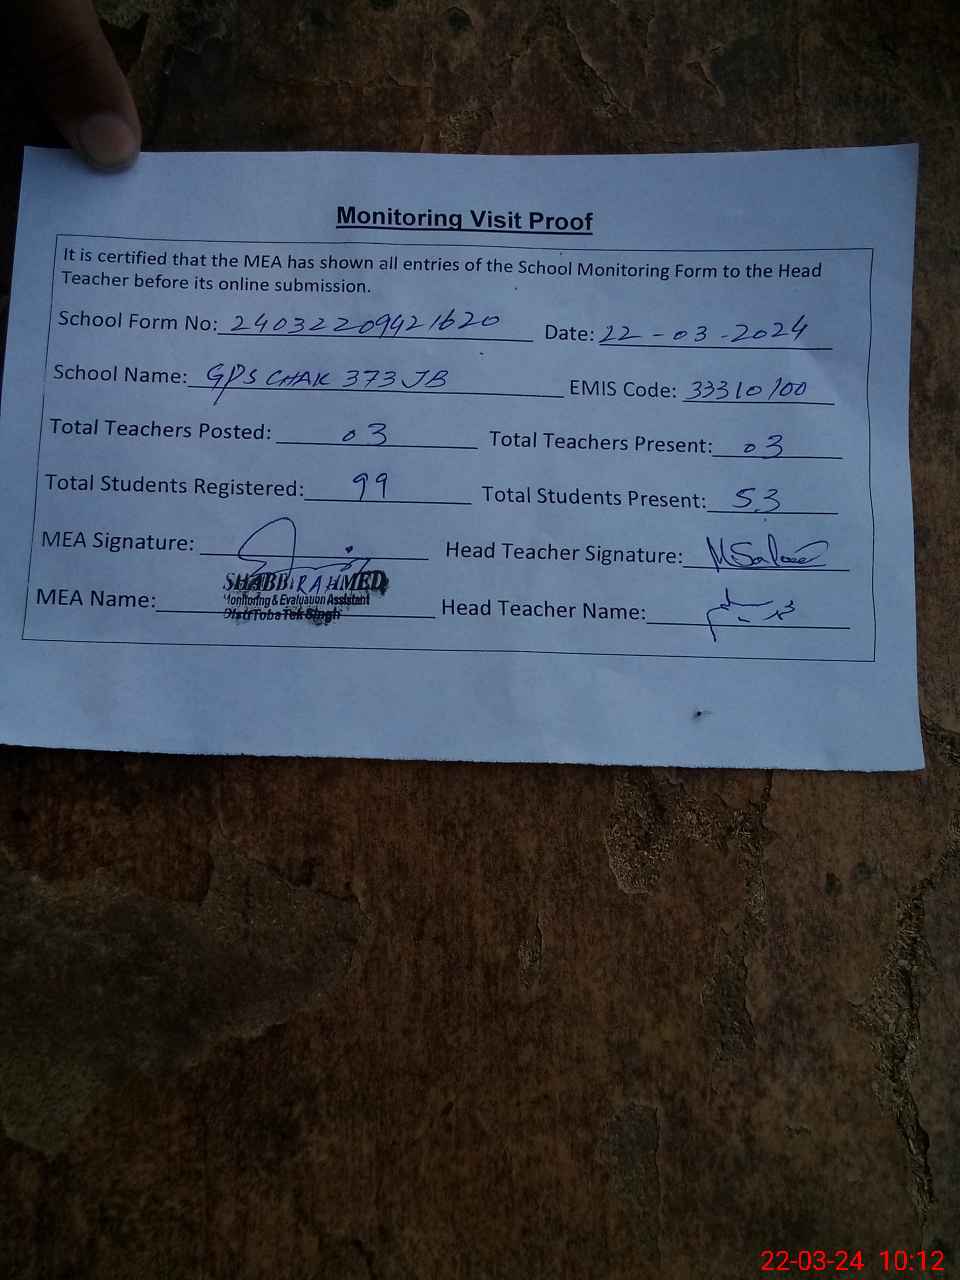 Monitoring Visit Proof
It is certified that the MEA has shown all entries of the School Monitoring Form to the Head
Teacher before its online submission.
School Form No: 24032209421620 Date: 22-03-2024
School Name: GPS CHAK 373 JB EMIS Code: 33310100
Total Teachers Posted: 03 Total Teachers Present: 03
Total Students Registered: 99 Total Students Present: 53
MEA Signature: Head Teacher Signature:
SHABBIR AHMED
Monitoring & Evaluation Assistant
MEA Name: Distt Toba Tek Singh Head Teacher Name:
22-03-24 10:12